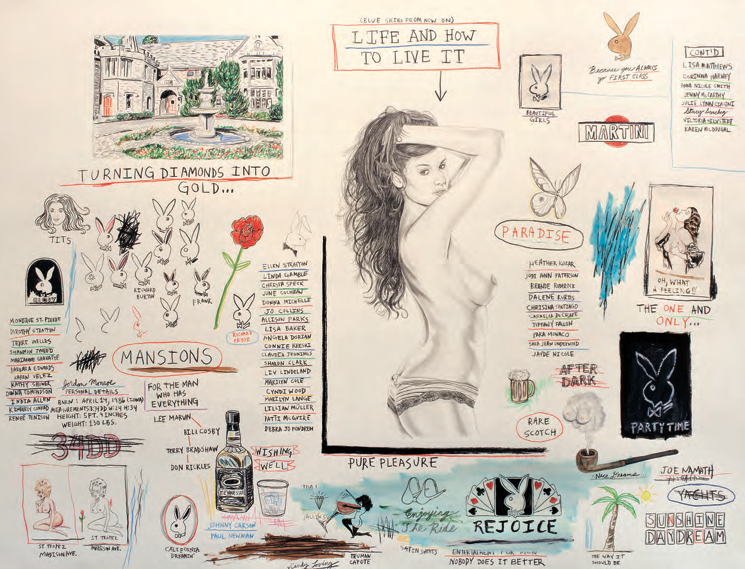 (BLUE SKIES FROM NOW ON)
LIFE AND HOW
TO LIVE IT
TURNING DIAMONDS INTO
GOLD...
TITS
RICHARD
BURTON
FRANK
RICHARD
PRYOR
MANSIONS
Jordan Monroe
PERSONAL DETAILS
HEIGHT: 5FT. 9 INCHES
WEIGHT: 130 LBS.
34DD
FOR THE MAN
WHO HAS
EVERYTHING
LEE MARVIN
BILL COSBY
TERRY BRADSHAW
DON RICKLES
JOHNNY CARSON
PAUL NEWMAN
WISHING
WELL
DOROTHY STRATTEN
TERRI WELLES
SHANNON TWEED
MARIANNE GRAVATTE
BARBARA EDWARDS
KAREN VELEZ
KATHY SHOWER
DONNA EDMONDSON
INDIA ALLEN
KIMBERLEY CONRAD
RENEE TENISON
ELLEN STRATTON
LINDA GAMBLE
CHRISTA SPECK
JUNE COCHRAN
DONNA MICHELLE
JO COLLINS
ALLISON PARKS
LISA BAKER
ANGELA DORIAN
CONNIE KRESKI
CLAUDIA JENNINGS
SHARON CLARK
LIV LINDELAND
MARILYN COLE
CYNDI WOOD
MARILYN LANGE
LILLIAN MÜLLER
PATTI McGUIRE
DEBRA JO FONDREN
ST. TROPEZ
MADISON AVE.
ST. TROPEZ
MADISON AVE.
CALIFORNIA
DREAMIN'
PURE PLEASURE
TRUMAN
CAPOTE
Enjoying
The Ride
SATIN SHEETS
REJOICE
ENTERTAINMENT FOR MEN
NOBODY DOES IT BETTER
BEAUTIFUL
GIRLS
Because you ALWAYS
go FIRST CLASS
MARTINI
CONT'D
LISA MATTHEWS
CORINNA HARNEY
ANNA NICOLE SMITH
JENNY McCARTHY
JULIE LYNN CIALINI
Stacy Sanchez
VICTORIA SILVSTEDT
KAREN McDOUGAL
PARADISE
HEATHER KOZAR
JODI ANN PATERSON
BRANDE RODERICK
DALENE KURTIS
CHRISTINA SANTIAGO
CARMELLA DECESARE
TIFFANY FALLON
KARA MONACO
SARA JEAN UNDERWOOD
JAYDE NICOLE
AFTER
DARK
RARE
SCOTCH
OH, WHAT
A FEELING!!
THE ONE AND
ONLY...
PARTY TIME
Nice Dreams
JOE NAMATH
YACHTS
SUNSHINE
DAYDREAM
THE WAY IT
SHOULD BE